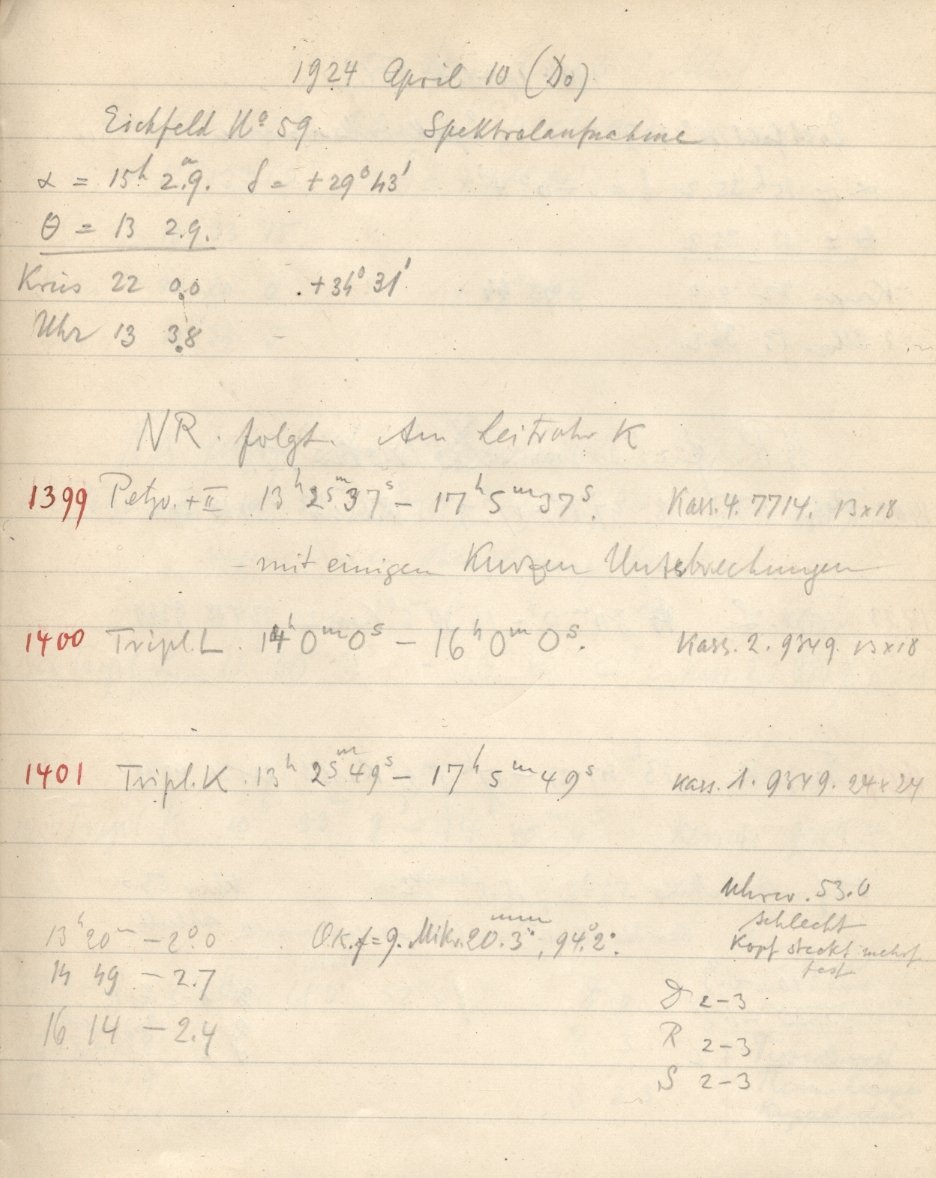 1924 April 10 (Do)
Eichfeld No 59. Spektralaufnahme
α = 15h 2.m9. δ = +29° 43'
θ = 13 2.9.
Kreis 22 0.0 +34° 31'
Uhr 13 3.8 –
NR. folgt. Am Leitrohr K
1399 Petzv. + II 13h 25m 37s – 17h 5m 37s. Kass. 4. 7714. 13×18
– mit einigen kurzen Unterbrechungen
1400 Tripl. L. 14h 0m 0s – 16h 0m 0s. Kass. 2. 9349. 13×18
1401 Tripl. K. 13h 25m 49s – 17h 5m 49s Kass. 1. 9349. 24×24
Uhrw. 53.0
schlecht
Kopf steckt mehrf
fest
13h 20m – 2°.0 Ok. f = 9. Mikr. 20.3mm, 94.°2.
14 49 – 2.7
16 14 – 2.4
D 2–3
R 2–3
S 2–3